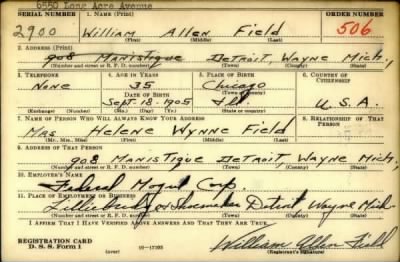 6550 Long Acre Avenue
SERIAL NUMBER 1. NAME (Print) ORDER NUMBER
2900 William Allen Field 506
(First) (Middle) (Last)
2. ADDRESS (Print)
908 Manistique Detroit, Wayne Mich,
(Number and street or R. F. D. number) (Town) (County) (State)
3. TELEPHONE 4. AGE IN YEARS 5. PLACE OF BIRTH 6. COUNTRY OF CITIZENSHIP
None 35 Chicago
DATE OF BIRTH (Town or county)
Sept. 18. 1905 Ill. U.S.A.
(Exchange) (Number) (Mo.) (Day) (Yr.) (State or country)
7. NAME OF PERSON WHO WILL ALWAYS KNOW YOUR ADDRESS 8. RELATIONSHIP OF THAT PERSON
Mrs Helene Wynne Field
(Mr., Mrs., Miss) (First) (Middle) (Last)
9. ADDRESS OF THAT PERSON
908 Manistique Detroit, Wayne Mich,
(Number and street or R. F. D. number) (Town) (County) (State)
10. EMPLOYER'S NAME
Federal Mogul Corp.
11. PLACE OF EMPLOYMENT OR BUSINESS
Shoemaker Detroit, Wayne Mich.
(Number and street or R. F. D. number) (Town) (County) (State)
I AFFIRM THAT I HAVE VERIFIED ABOVE ANSWERS AND THAT THEY ARE TRUE.
REGISTRATION CARD
D. S. S. Form 1 (over) 16—17105 William Allen Field
(Registrant's signature)